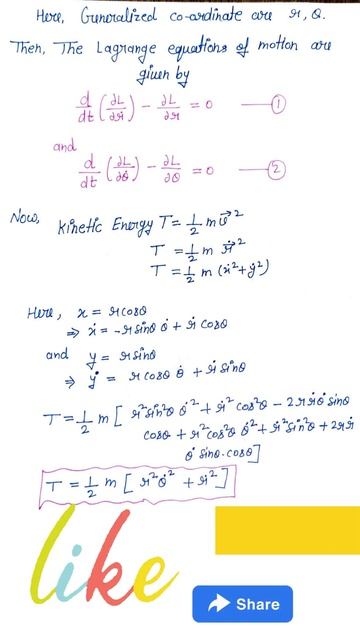 Here, Generalized co-ordinate are r, θ.
Then, The Lagrange equations of motion are
given by
d/dt (∂L/∂ṙ) − ∂L/∂r = 0 —— ①
and
d/dt (∂L/∂θ̇) − ∂L/∂θ = 0 —— ②
Now, Kinetic Energy T = 1/2 m v⃗²
T = 1/2 m ṙ⃗²
T = 1/2 m (ẋ² + ẏ²)
Here, x = r cosθ
⇒ ẋ = −r sinθ θ̇ + ṙ cosθ
and y = r sinθ
⇒ ẏ = r cosθ θ̇ + ṙ sinθ
T = 1/2 m [ r² sin²θ θ̇² + ṙ² cos²θ − 2rṙθ̇ sinθ
cosθ + r² cos²θ θ̇² + ṙ² sin²θ + 2rṙ
θ̇ sinθ·cosθ]
T = 1/2 m [ r²θ̇² + ṙ² ]
like
Share